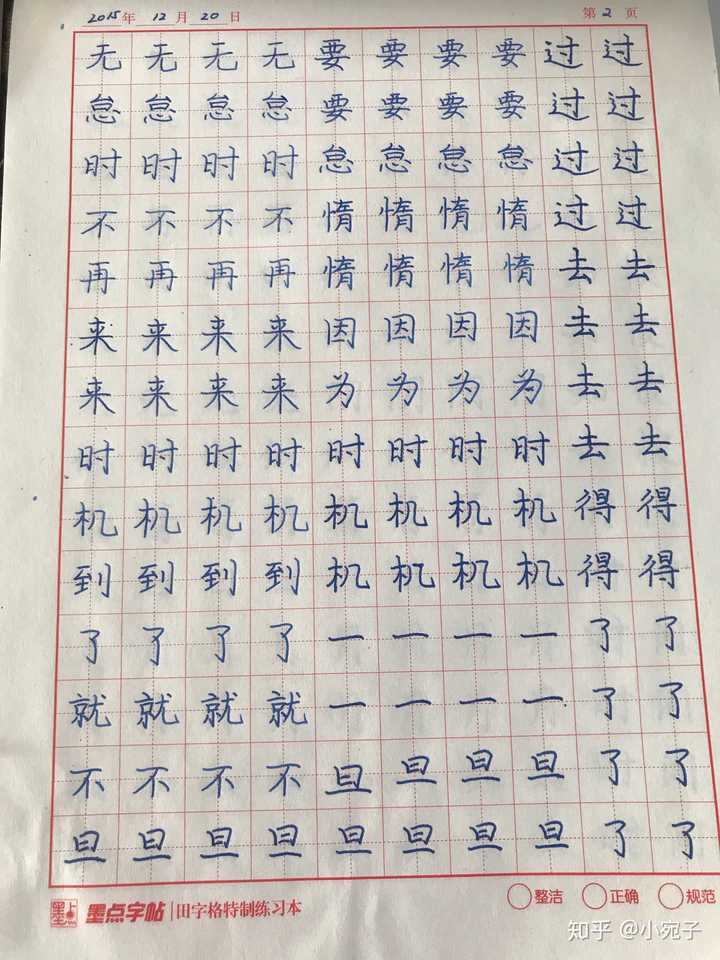 2015年 12月 20日 第2页
无无无无要要要要过过
怠怠怠怠要要要要过过
时时时时怠怠怠怠过过
不不不不惰惰惰惰过过
再再再再惰惰惰惰去去
来来来来因因因因去去
来来来来为为为为去去
时时时时时时时时去去
机机机机机机机机得得
到到到到机机机机得得
了了了了一一一一了了
就就就就一一一一了了
不不不不旦旦旦旦了了
旦旦旦旦旦旦旦旦了了
墨点字帖 田字格特制练习本 整洁 正确 规范
知乎 @小宛子